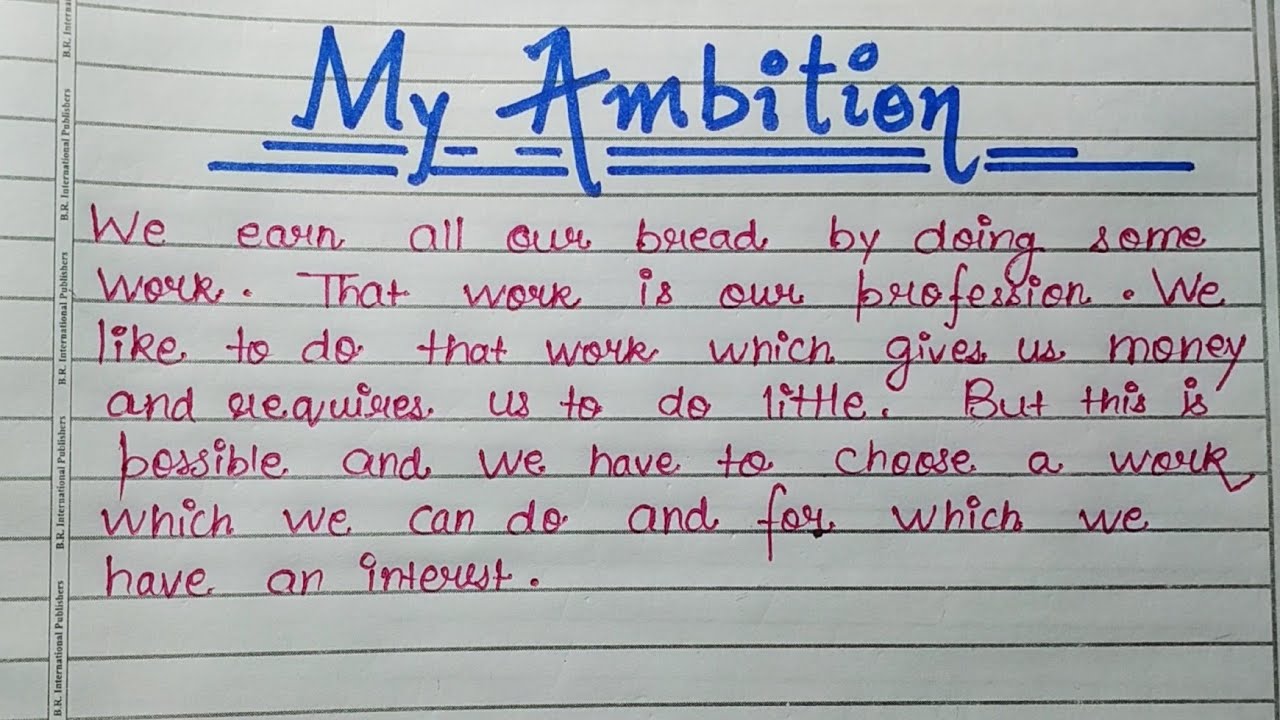 My Ambition
We earn all our bread by doing some
work. That work is our profession. We
like to do that work which gives us money
and requires us to do little. But this is
possible and we have to choose a work
which we can do and for which we
have an interest.
B.R. International Publishers
B.R. International Publishers
B.R. International Publishers
B.R. International Publishers